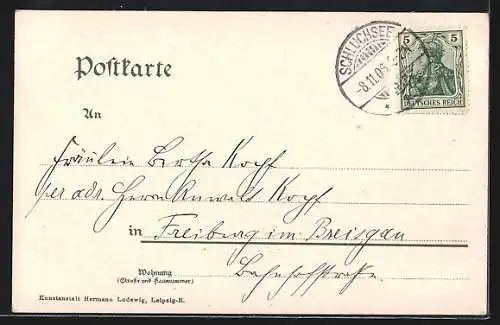 SCHLUCHSEE
-8.11.06.
5 5
DEUTSCHES REICH
Postkarte
An
Fräulein Bertha Kopf
per adr. Herrn Anwalt Kopf
in Freiburg im Breisgau
Wohnung
(Straße und Hausnummer)
Bahnhofstraße
Kunstanstalt Hermann Ludewig, Leipzig-R.